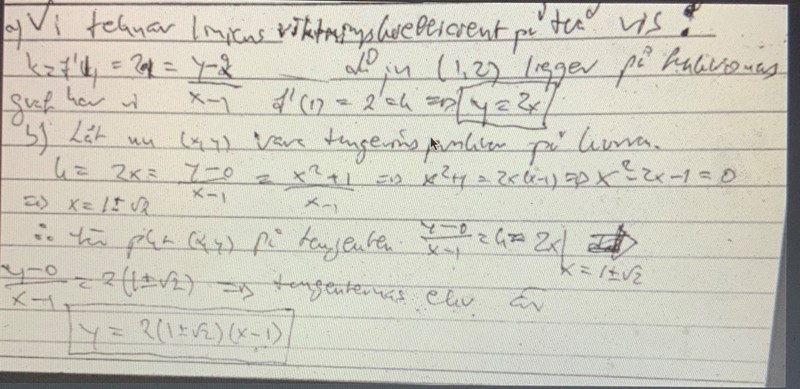 a) Vi tecknar linjens riktningskoefficient på två vis:
k = f'(1) = 2·1 = (y-2)/(x-1) då (1,2) ligger på funktionens
graf har vi f'(1) = 2 = k => y = 2x
b) Låt nu (x,y) vara tangerings punkten på kurvan.
k = 2x = (y-0)/(x-1) = (x²+1)/(x-1) => x²+1 = 2x(x-1) => x²-2x-1=0
=> x = 1±√2
∴ för pkt (x,y) på tangenten (y-0)/(x-1) = k = 2x| x=1±√2 =>
(y-0)/(x-1) = 2(1±√2) => tangenternas ekv är
y = 2(1±√2)(x-1)